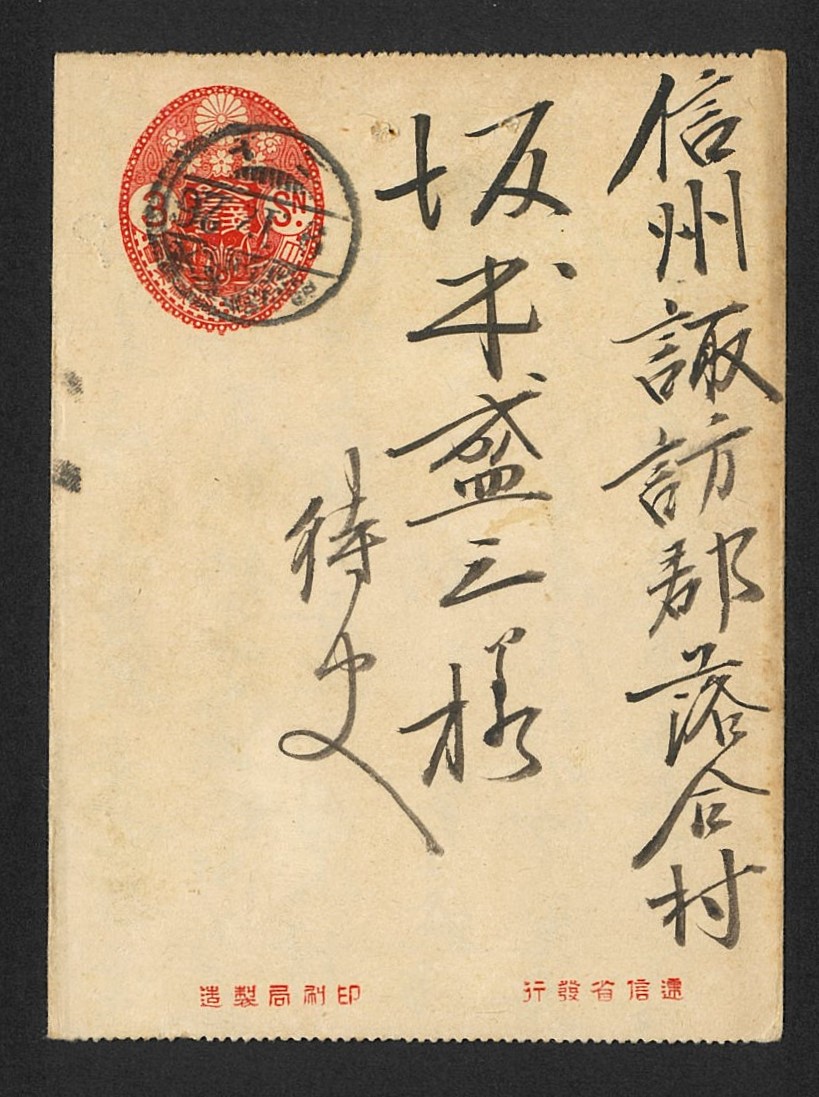 信州諏訪郡落合村
坂本盛三様
侍史
3 SN.
遞信省發行
印刷局製造